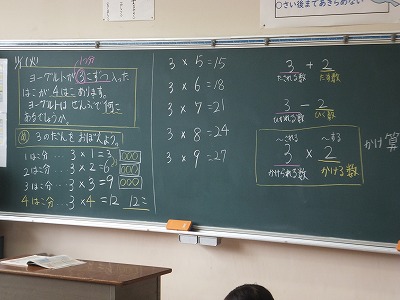 さい後まであきらめない
1つ分
ヨーグルトが3こずつ入った
はこが4はこあります。
ヨーグルトはぜんぶで何こ
あるでしょうか。
め 3のだんをおぼえよう。
1はこ分…3×1=3
2はこ分…3×2=6
3はこ分…3×3=9
4はこ分…3×4=12 12こ
3×5=15
3×6=18
3×7=21
3×8=24
3×9=27
3+2
たされる数 たす数
3-2
ひかれる数 ひく数
~される ~する
3×2
かけられる数 かける数
かけ算